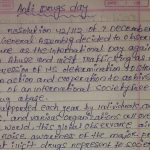 Anti drugs day
Resolution 42/112 of 7 December
General Assembly decided to observe
June as the International Day against
Abuse and Illicit Trafficking as
expression of its determination to
action and cooperation to achieve
of an international society free
drug abuse.
supported each year by individuals,
and various organisations all over
world, this global observance
raise awareness of the major
that illicit drugs represent to society